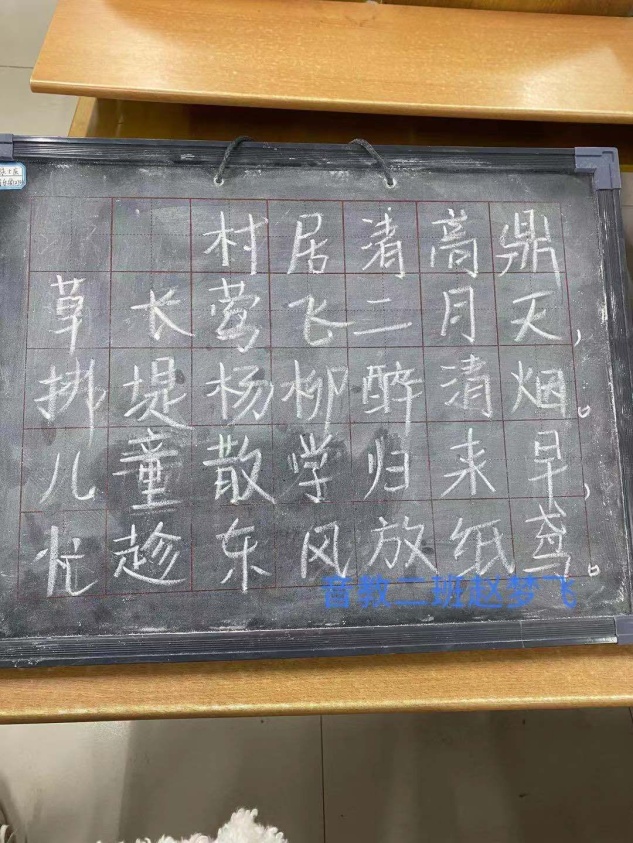 村居清高鼎
草长莺飞二月天,
拂堤杨柳醉清烟。
儿童散学归来早,
忙趁东风放纸鸢。
音教二班赵梦飞